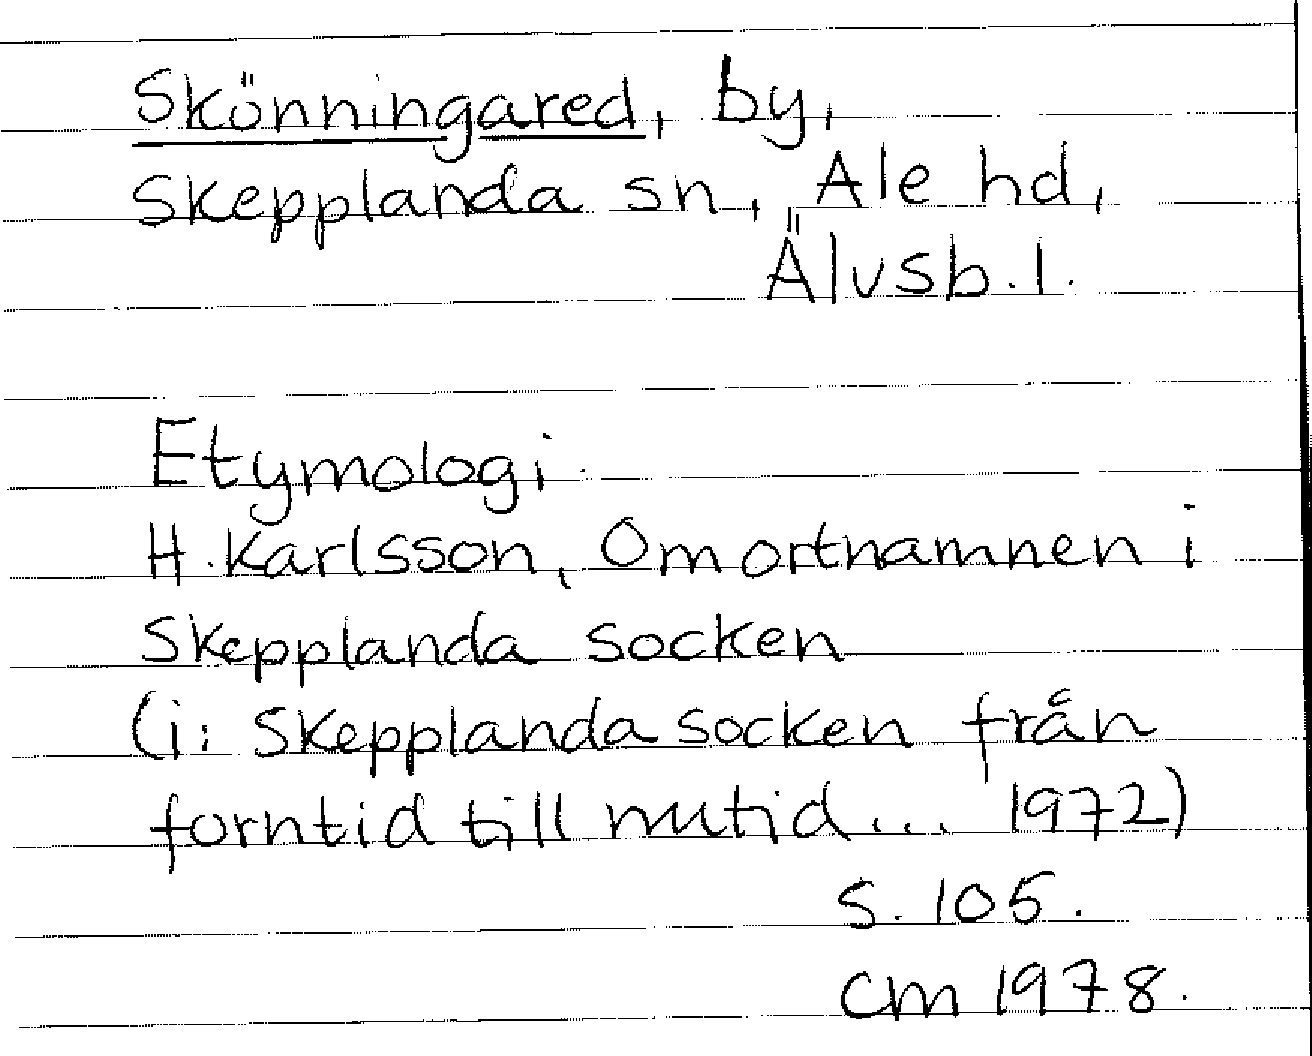 Skönningared, by,
Skepplanda sn, Ale hd,
Älvsb. l.
Etymologi
H. Karlsson, Om ortnamnen i
Skepplanda socken
(i: Skepplanda socken från
forntid till nutid... 1972)
s. 105.
CM 1978.